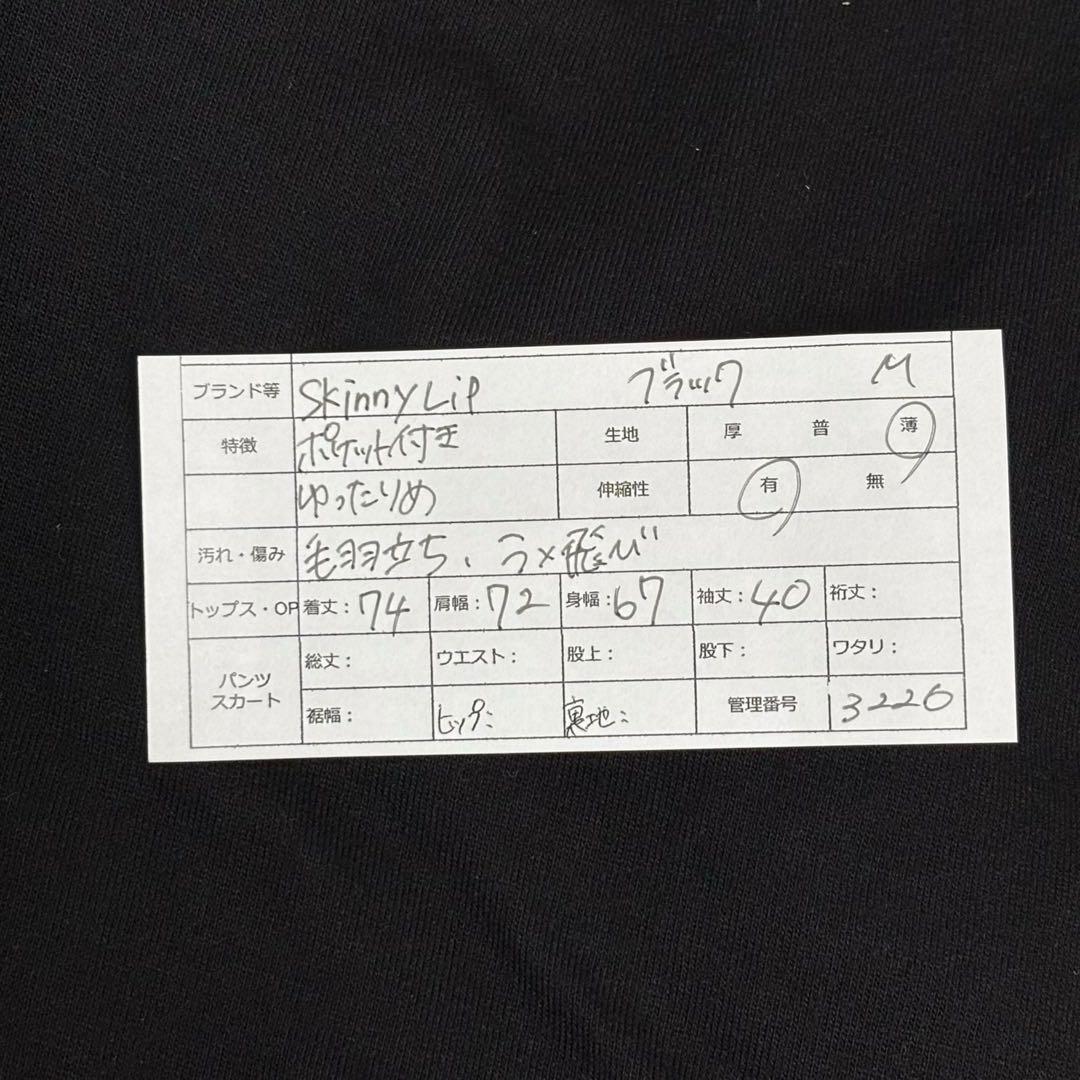 ブランド等 SkinnyLip ブラック M
特徴 ポケット付き 生地 厚 普 薄
ゆったりめ 伸縮性 有 無
汚れ・傷み 毛羽立ち、ラメ飛び
トップス・OP 着丈：74 肩幅：72 身幅：67 袖丈：40 裄丈：
パンツ スカート 総丈： ウエスト： 股上： 股下： ワタリ：
裾幅： ヒップ： 裏地： 管理番号 3226